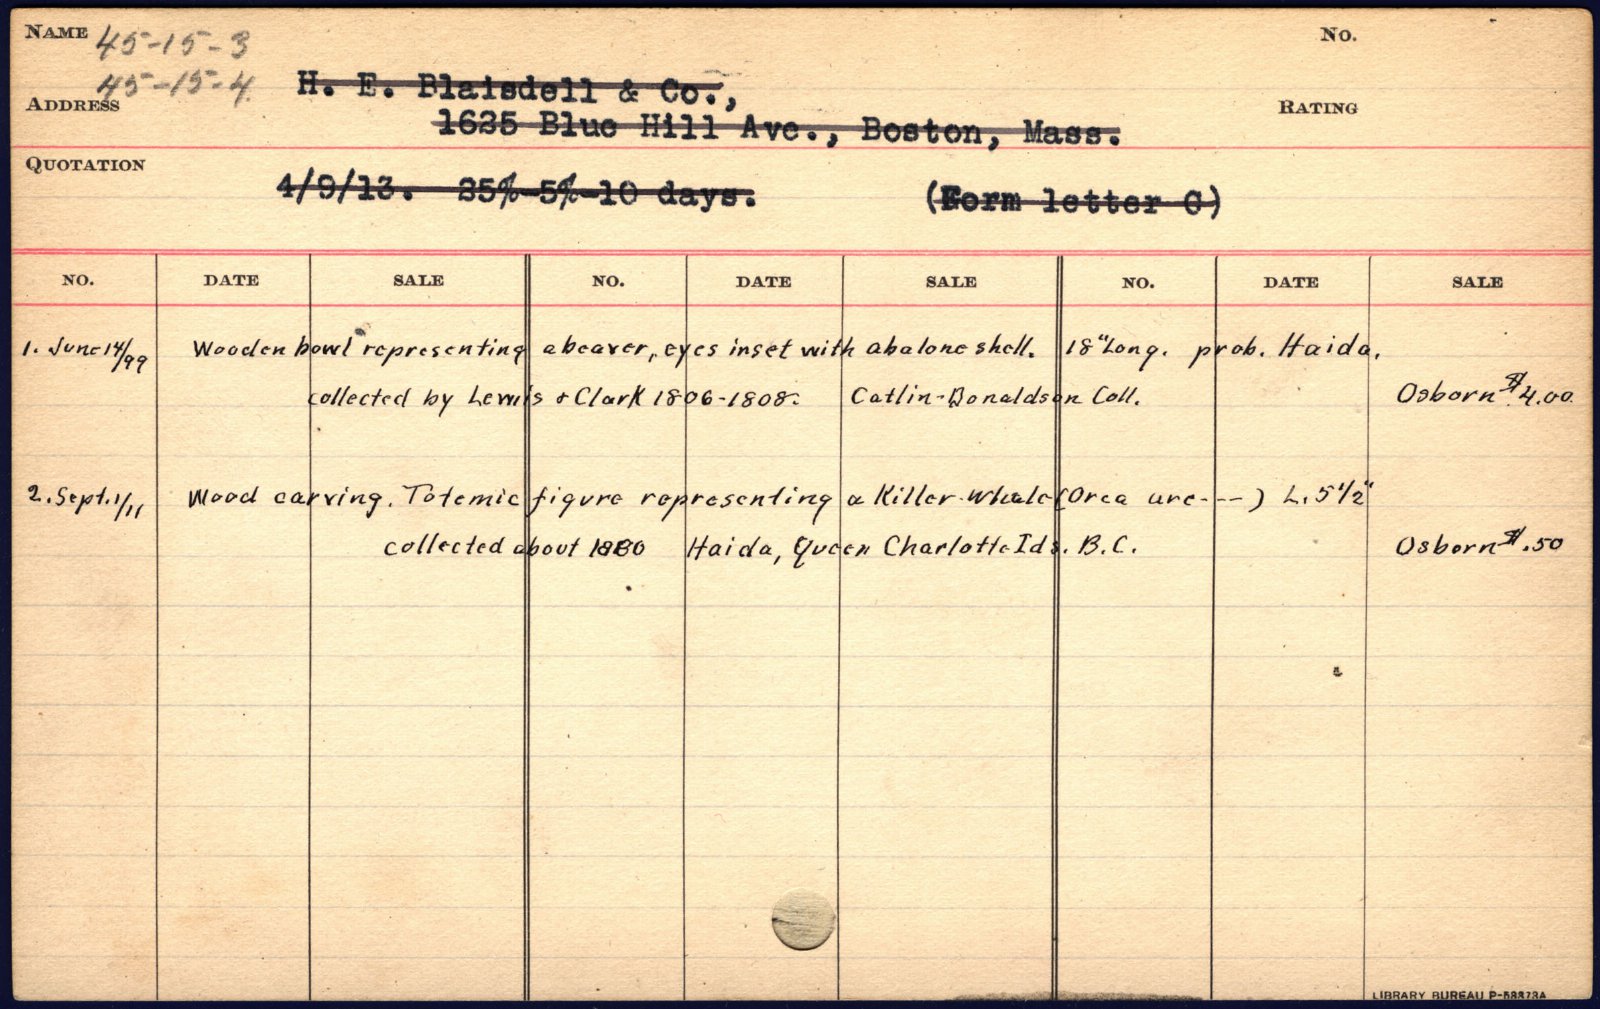 NAME 45-15-3 No.
45-15-4
H. E. Blaisdell & Co.,
ADDRESS RATING
1625 Blue Hill Ave., Boston, Mass.
QUOTATION
4/9/13. 25%-5%-10 days. (Form letter C)
NO. DATE SALE NO. DATE SALE NO. DATE SALE
1. June 14/99 Wooden bowl representing a beaver, eyes inset with abalone shell. 18" Long. prob. Haida.
collected by Lewis & Clark 1806-1808. Catlin-Donaldson Coll. Osborn $4.00
2. Sept. 1/11 Wood carving. Totemic figure representing a Killer Whale (Orca urc---) L. 5 1/2"
collected about 1880 Haida, Queen Charlotte Ids. B.C. Osborn $.50
LIBRARY BUREAU P-58873A